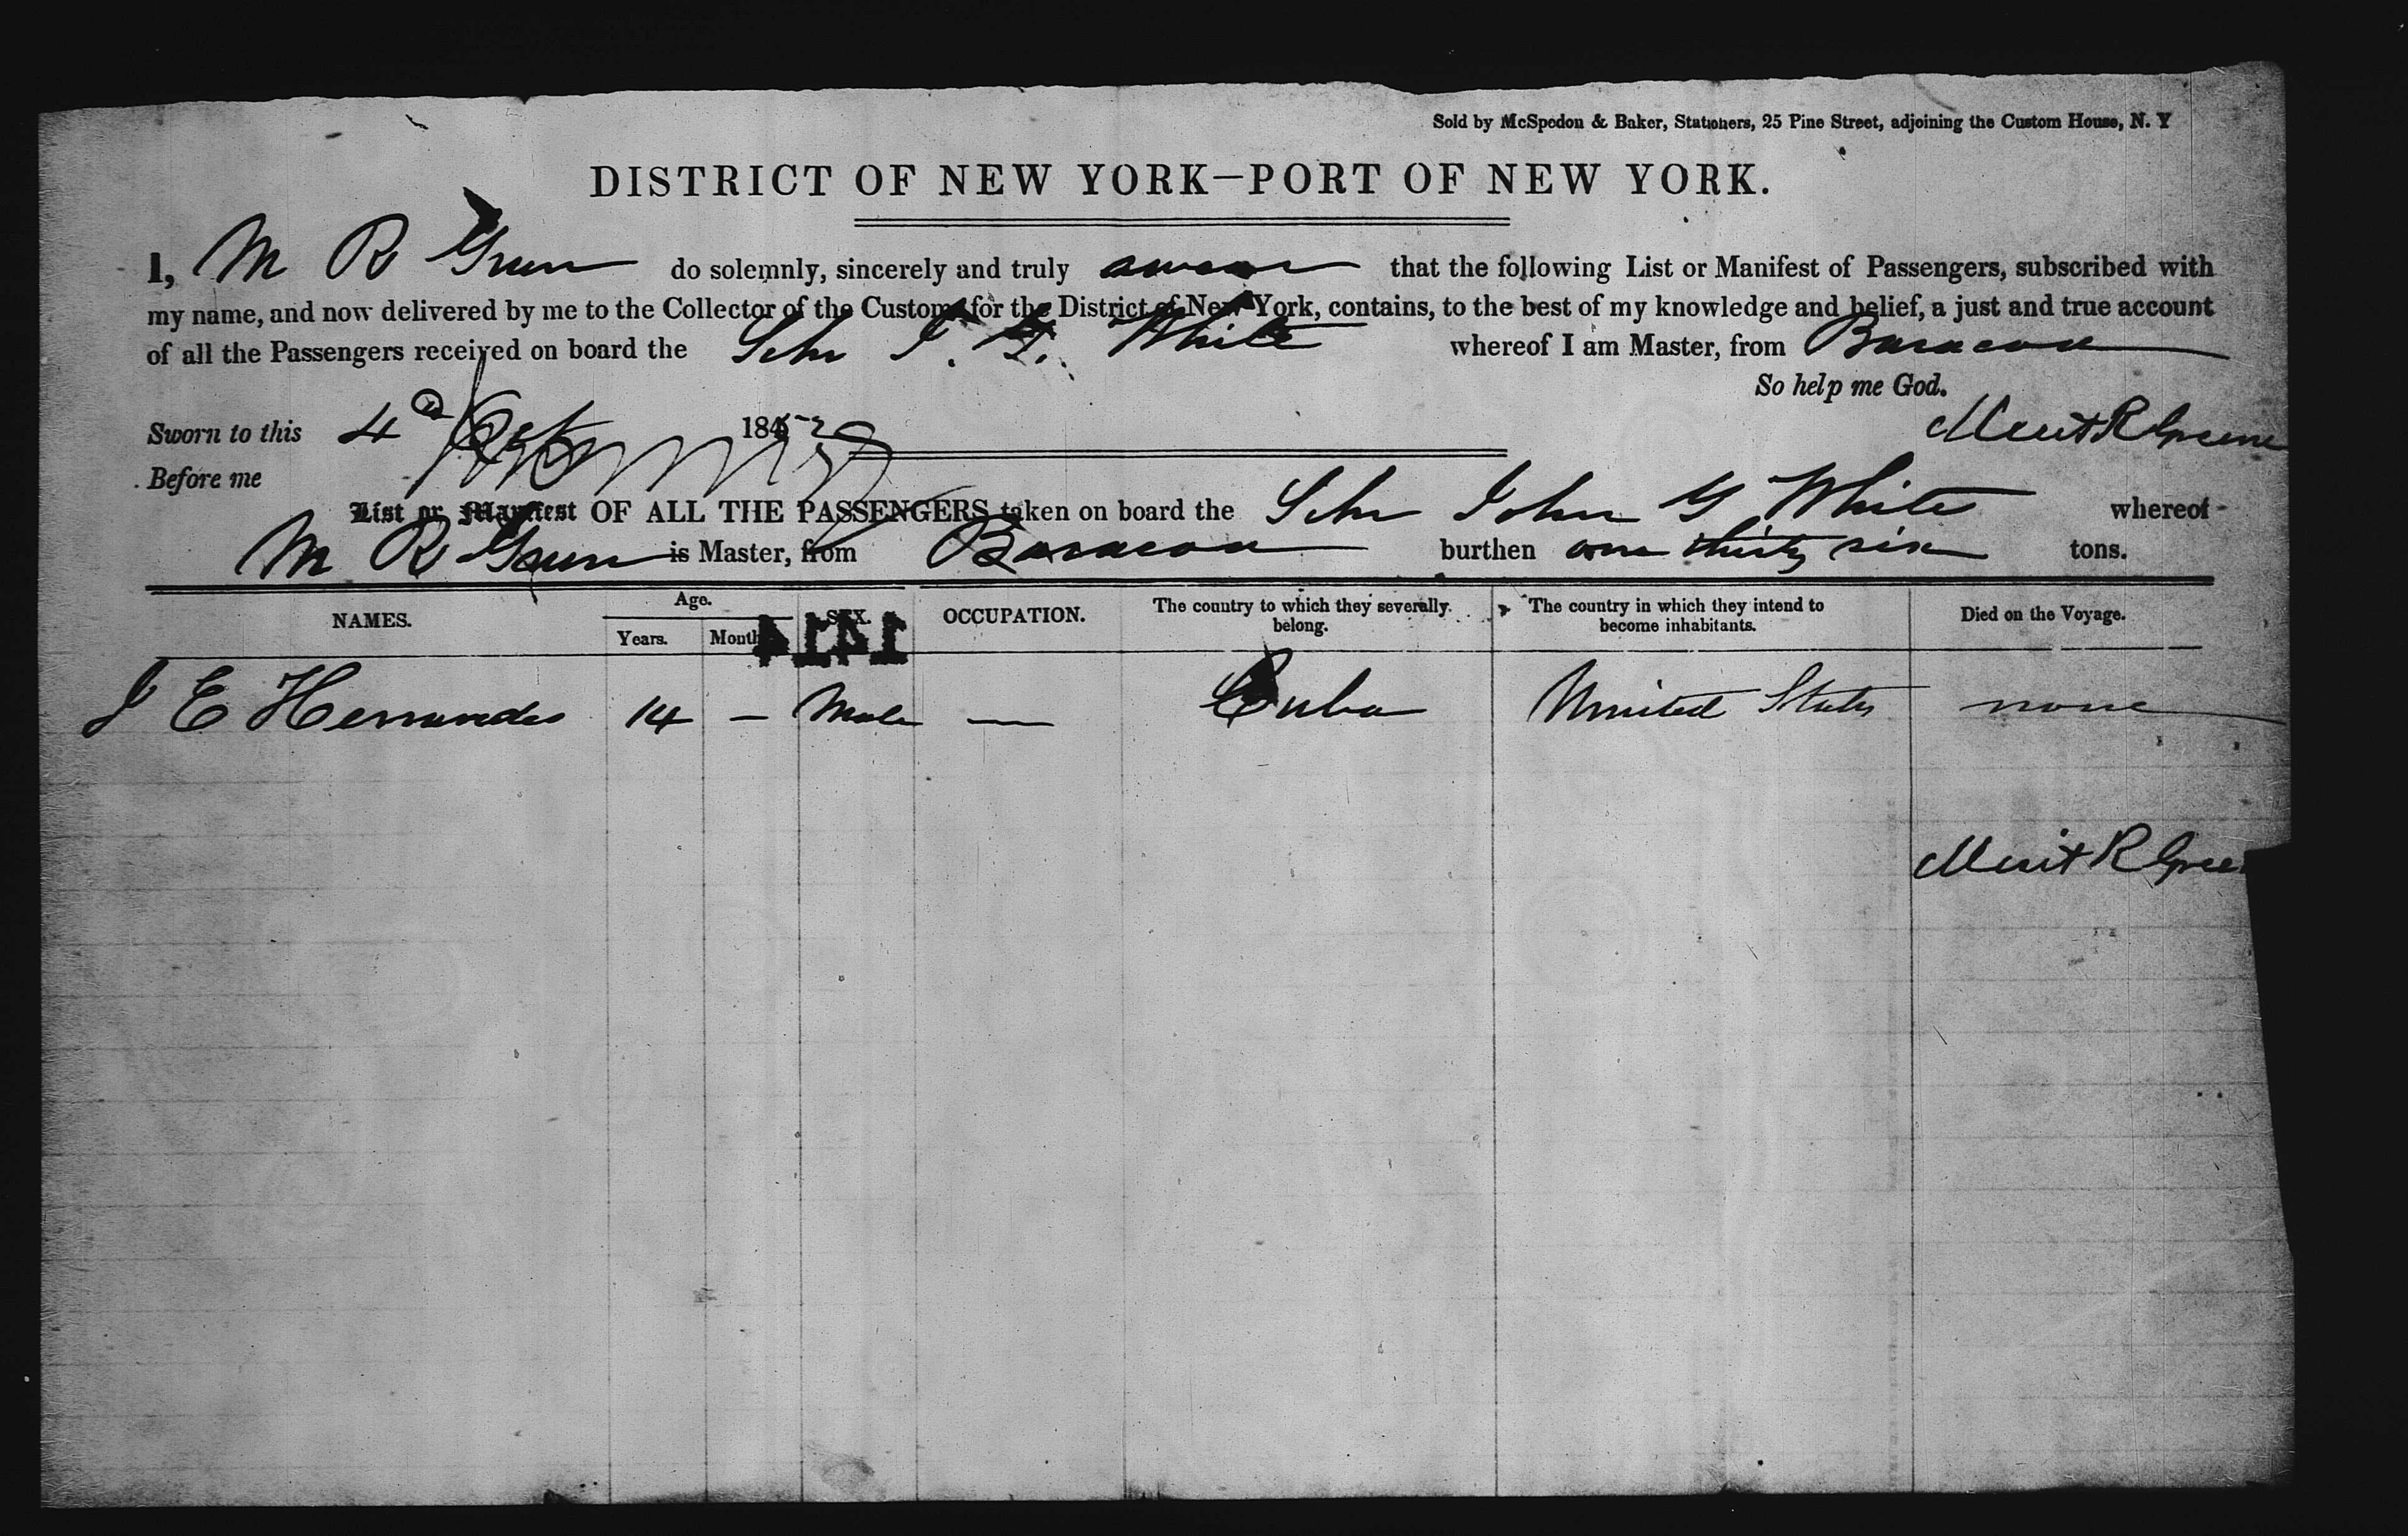 Sold by McSpedon & Baker, Stationers, 25 Pine Street, adjoining the Custom House, N. Y
DISTRICT OF NEW YORK—PORT OF NEW YORK.
I, M R Green do solemnly, sincerely and truly swear that the following List or Manifest of Passengers, subscribed with
my name, and now delivered by me to the Collector of the Customs for the District of New York, contains, to the best of my knowledge and belief, a just and true account
of all the Passengers received on board the Schr J. G. White whereof I am Master, from Baracoa
So help me God.
Sworn to this 4th Oct 1852 Merit R Greene
Before me
List or Manifest OF ALL THE PASSENGERS taken on board the Schr John G White whereof
M R Green is Master, from Baracoa burthen one thirty six tons.
NAMES. Age. Years. Months SEX. OCCUPATION. The country to which they severally belong. The country in which they intend to become inhabitants. Died on the Voyage.
1414
J E Hernandes 14 — Male — Cuba United States none
Merit R Green